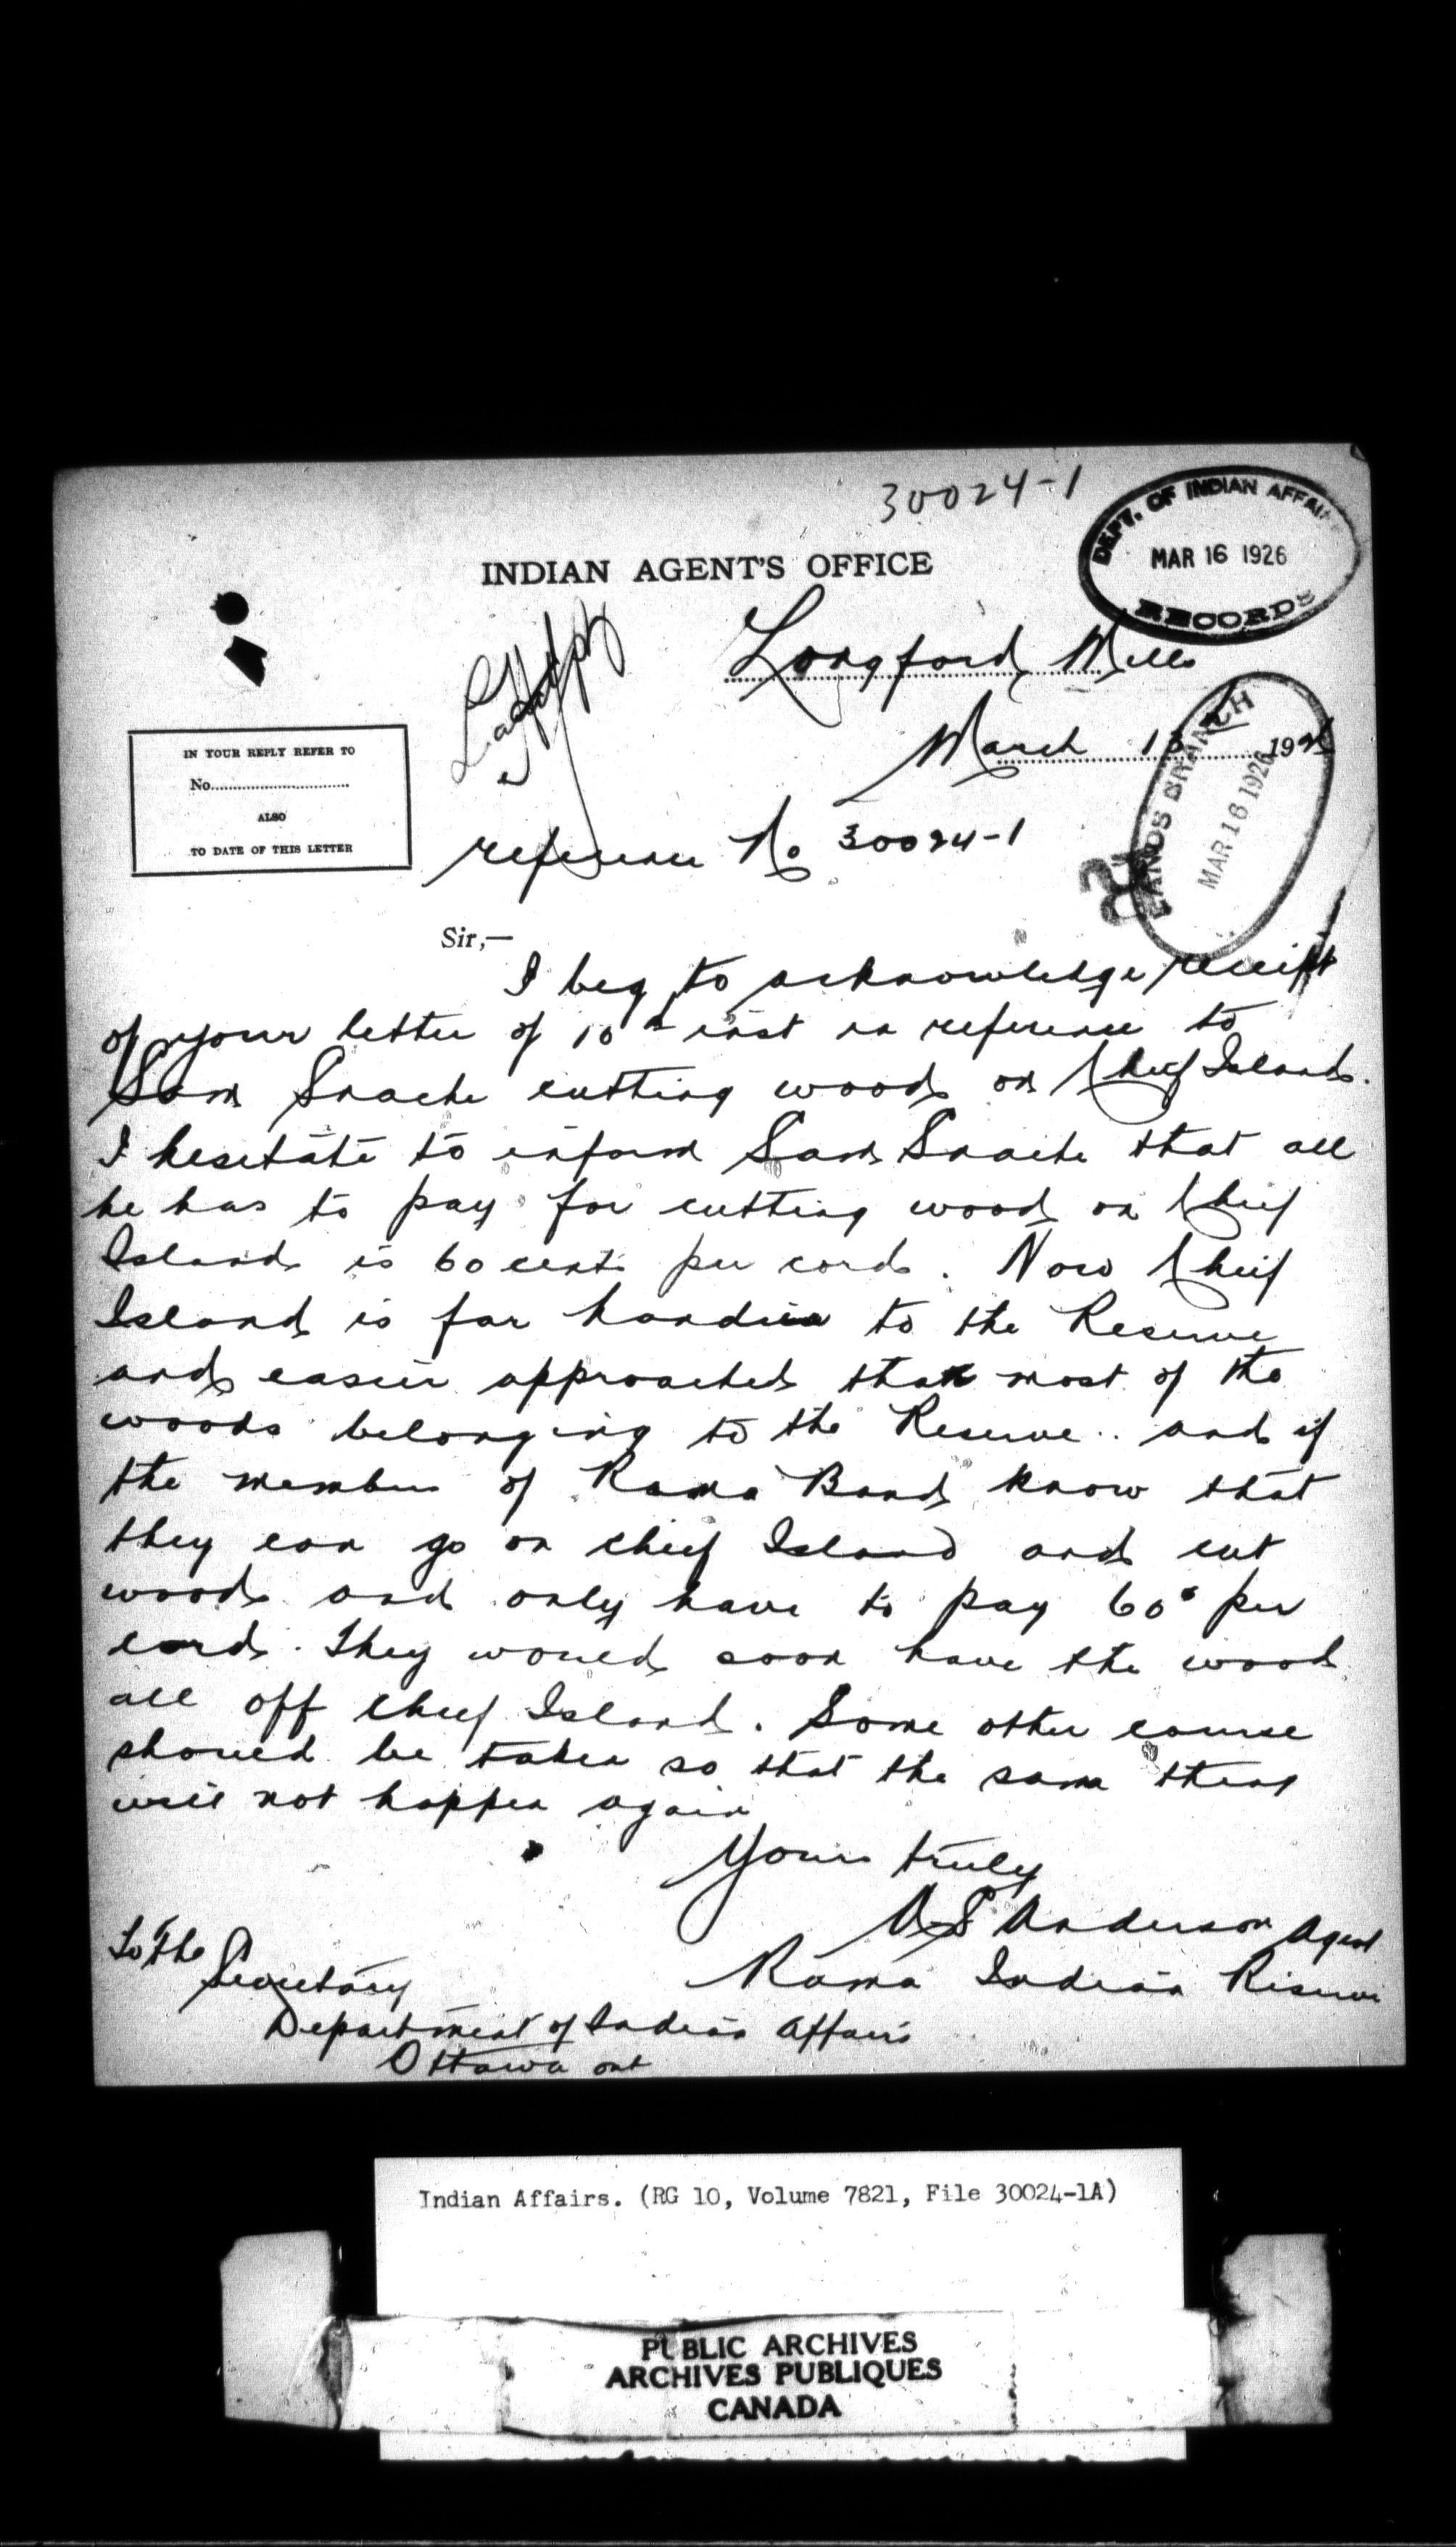 30024-1
DEPT. OF INDIAN AFFAIRS
MAR 16 1926
RECORDS
INDIAN AGENT'S OFFICE
Longford Mills
March 15 19
LANDS BRANCH
MAR 16 1926
IN YOUR REPLY REFER TO
No.
ALSO
TO DATE OF THIS LETTER
reference No 30024-1
Sir,—
I beg to acknowledge receipt
of your letter of 10th inst in reference to
Sam Snache cutting wood on Chief Island.
I hesitate to inform Sam Snache that all
he has to pay for cutting wood on Chief
Island is 60 cents per cord. Now Chief
Island is far handier to the Reserve
and easier approached than most of the
woods belonging to the Reserve.. and if
the members of Rama Band know that
they can go on chief Island and cut
wood and only have to pay 60c per
cord. They would soon have the wood
all off chief Island. Some other course
should be taken so that the same thing
will not happen again
Yours truly
A S Anderson Agent
Rama Indian Reserve
To The
Secretary
Department of Indian Affairs
Ottawa ont
Indian Affairs. (RG 10, Volume 7821, File 30024-1A)
PUBLIC ARCHIVES
ARCHIVES PUBLIQUES
CANADA